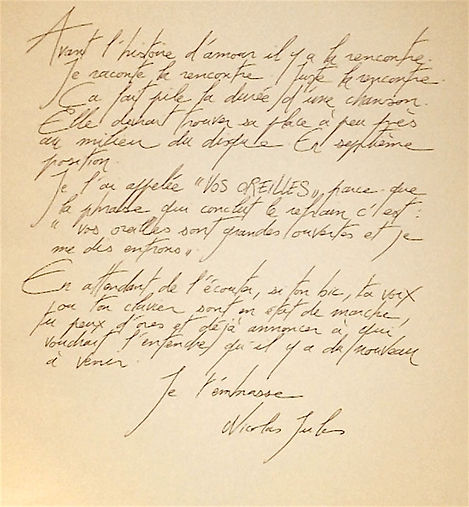 Avant l'histoire d'amour il y a la rencontre.
Je raconte la rencontre. Juste la rencontre.
Ca fait pile la durée d'une chanson.
Elle devrait trouver sa place à peu près
au milieu du disque. En septième
position.
Je l'ai appelée "VOS OREILLES", parce que
la phrase qui conclut le refrain c'est :
"Vos oreilles sont grandes ouvertes et je
me des entrons".
En attendant de l'écouter, si ton bic, ta voix
ou ton clavier sont en état de marche,
tu peux d'ores et déjà annoncer à qui
voudrait l'entendre qu'il y a du nouveau
à venir.
Je t'embrasse
Nicolas Jules